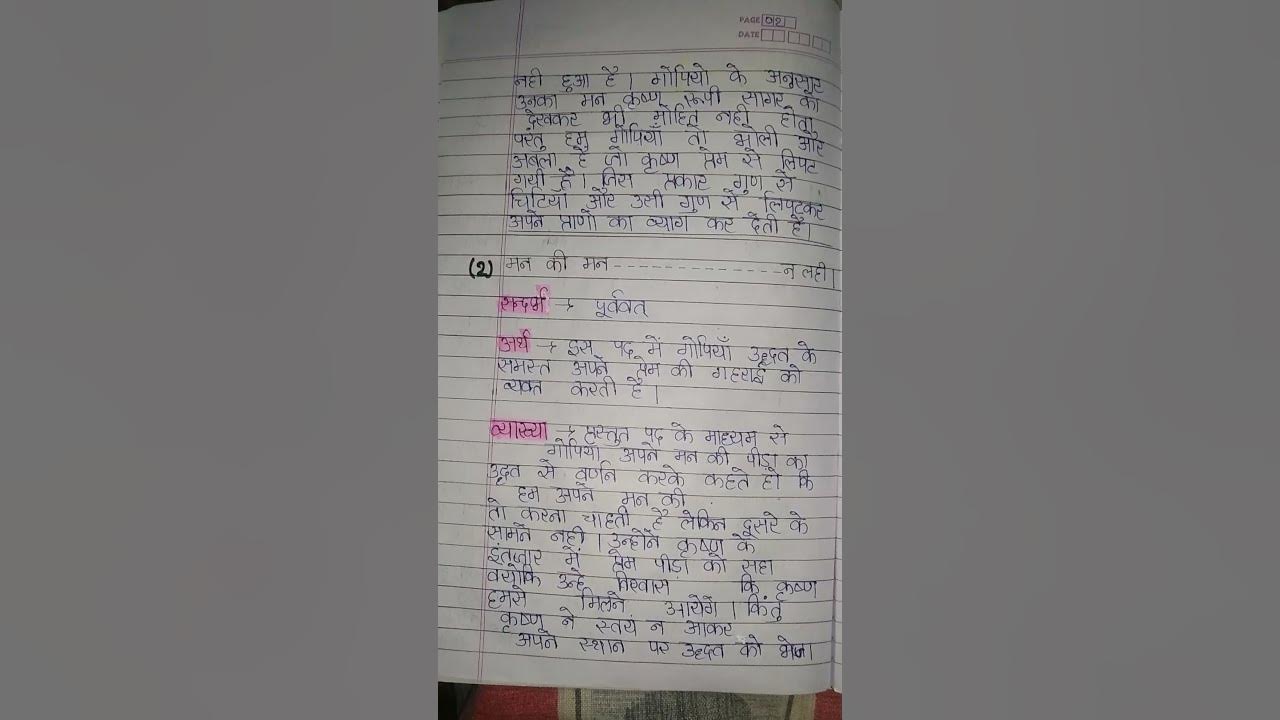 PAGE 02
DATE
नही हुआ है। गोपियो के अनुसार
उनका मन कृष्ण रूपी सागर को
देखकर भी मोहित नही होता
परंतु हम गोपियाँ तो भोली और
अबला है जो कृष्ण प्रेम से लिपट
गयी है। जिस प्रकार गुण से
चिटियाँ और उसी गुण से लिपटकर
अपने प्राणों का व्याग कर देती है।
(2) मन की मन-------------न लही।
सन्दर्भ → पूर्ववत्
अर्थ → इस पद में गोपियाँ उद्धत के
समस्त अपने प्रेम की गहराई को
व्यक्त करती है।
व्याख्या → प्रस्तुत पद के माध्यम से
गोपियाँ अपने मन की पीड़ा का
उद्धत से वर्णन करके कहते हो कि
हम अपने मन की
तो करना चाहती है लेकिन दूसरे के
सामने नही। उन्होंने कृष्ण के
इंतजार में प्रेम पीड़ा को सहा
क्योंकि उन्हे विश्वास कि कृष्ण
हमसे मिलने आयेगें। किंतु
कृष्ण ने स्तयं न आकर
अपने स्थान पर उद्धत को भेजा